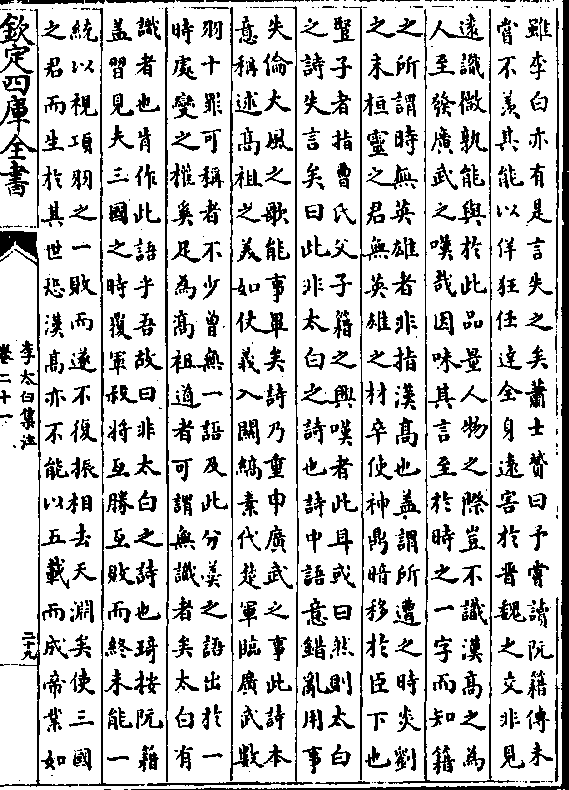 雖李白亦有是言失之矣蕭士贇曰予嘗讀阮籍傳未
嘗不羨其能以佯狂任達全身遠害於晉魏之交非見
遠識微孰能與於此品量人物之際豈不識漢高之為
人至發廣武之嘆哉因味其言至於時之一字而知籍
之所謂時無英雄者非指漢高也蓋謂所遭之時炎劉
之末桓靈之君無英雄之材卒使神鼎暗移於臣下也
豎子者指曹氏父子籍之興嘆者此耳或曰然則太白
之詩失言矣曰此非太白之詩也詩中語意錯亂用事
失倫大風之歌能事畢矣詩乃重申廣武之事此詩本
意稱述高祖之美如仗義入關縞素代楚軍臨廣武數
羽十罪可稱者不少曾無一語及此分羹之語出於一
時處變之權奚足為高祖道者可謂無識者矣太白有
識者也肯作此語乎吾故曰非太白之詩也琦按阮籍
蓋習見夫三國之時覆軍殺將互勝互敗而終未能一
統以視項羽之一敗而遂不復振相去天淵矣使三國
之君而生於其世恐漢高亦不能以五載而成帝業如
欽定四庫全書
李太白集注
卷二十一
二十九